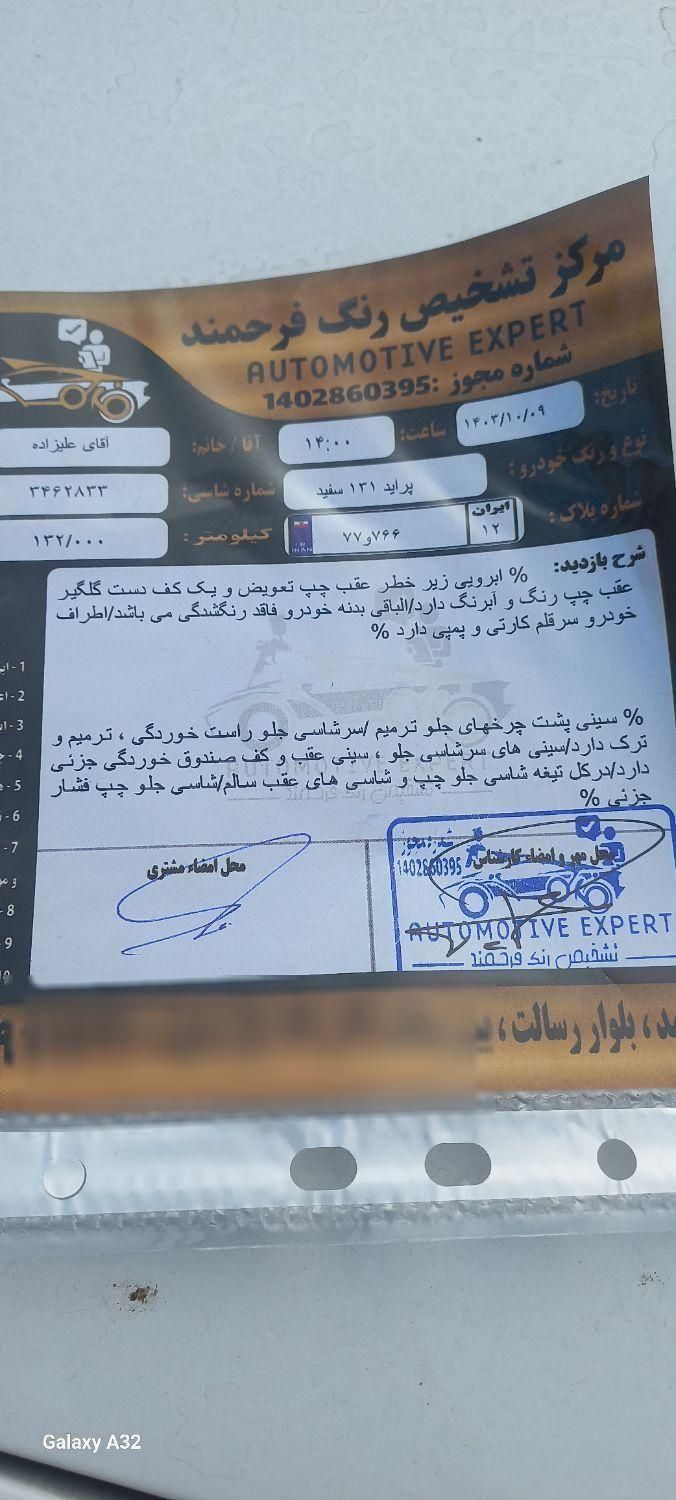 مرکز تشخیص رنگ فرحمند
AUTOMOTIVE EXPERT
شماره مجوز :1402860395
تاریخ: ۱۴۰۳/۱۰/۰۹ ساعت: ۱۴:۰۰ آقا / خانم: آقای علیزاده
نوع و رنگ خودرو : پراید ۱۳۱ سفید شماره شاسی: ۳۴۶۲۸۳۳
شماره پلاک : ایران ۱۲ ۷۶۶و۷۷ کیلومتر : ۱۳۲/۰۰۰
شرح بازدید: % ابرویی زیر خطر عقب چپ تعویض و یک کف دست گلگیر
عقب چپ رنگ و آبرنگ دارد/الباقی بدنه خودرو فاقد رنگشدگی می باشد/اطراف
خودرو سرقلم کارتی و پمپی دارد %
% سینی پشت چرخهای جلو ترمیم /سرشاسی جلو راست خوردگی ، ترمیم و
ترک دارد/سینی های سرشاسی جلو ، سینی عقب و کف صندوق خوردگی جزئی
دارد/درکل تیغه شاسی جلو چپ و شاسی های عقب سالم/شاسی جلو چپ فشار
جزئی %
محل مهر و امضاء کارشناس
محل امضاء مشتری
1402860395
AUTOMOTIVE EXPERT
تشخیص رنگ فرحمند
1 -
2 -
3 -
4 -
5 -
6 -
7 -
8 -
9 -
، بلوار رسالت ،
Galaxy A32